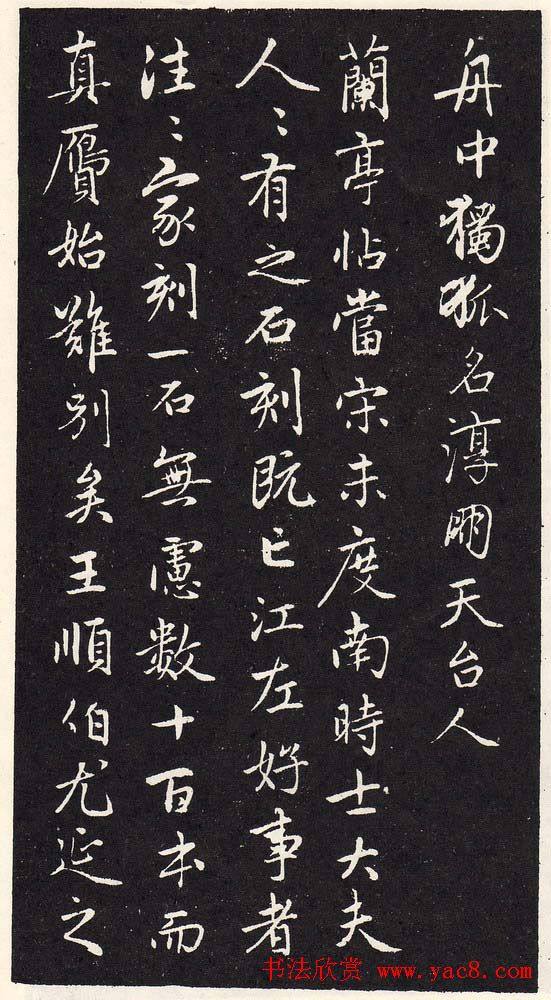 舟中獨孤名淳朋天台人
蘭亭帖當宋未度南時士大夫
人〻有之石刻既亡江左好事者
往〻家刻一石無慮數十百本而
真贋始難別矣王順伯尤延之
书法欣赏 www.yac8.com